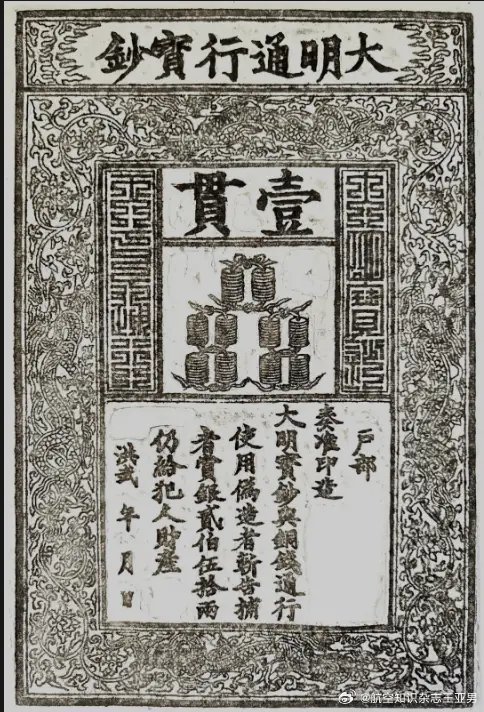 大明通行寶鈔
壹貫
户部
奏准印造
大明寶鈔與銅錢通行
使用偽造者斬告捕
者賞銀貳伯伍拾兩
仍給犯人財產
洪武 年 月 日
@航空知识杂志王亚男